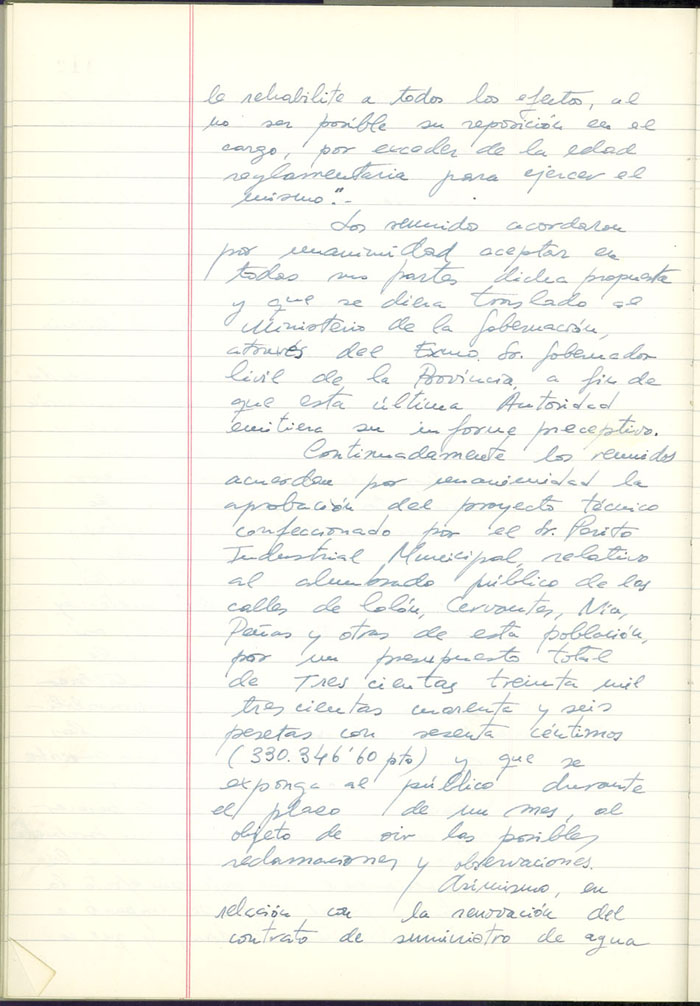 le rehabilite a todos los efectos, al
no ser posible su reposición en el
cargo, por exceder de la edad
reglamentaria para ejercer el
mismo".-
Los reunido acordaron
por unanimidad aceptar en
todas sus partes dicha propuesta
y que se diera traslado al
Ministerio de la Gobernación,
através del Exmo. Sr. Gobernador
Civil de la Provincia, a fin de
que esta última Autoridad
emitiera su informe preceptivo.
Continuadamente los reunidos
acuerdan por unanimidad la
aprobación del proyecto técnico
confeccionado por el Sr. Perito
Industrial Municipal, relativo
al alumbrado público de las
calles de Colón, Cervantes,
Peñas y otras de esta población,
por un presupuesto total
de Tres cientas treinta mil
tres cientas cuarenta y seis
pesetas con sesenta céntimos
(330.346'60 pts) y que se
exponga al público durante
el plazo de un mes, al
objeto de oir las posibles
reclamaciones y observaciones.
Asimismo, en
relación con la renovación del
contrato de suministro de agua